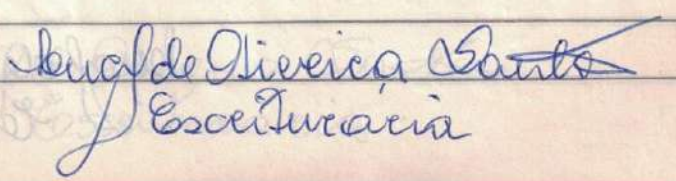 de Oliveira Santos
Escriturária